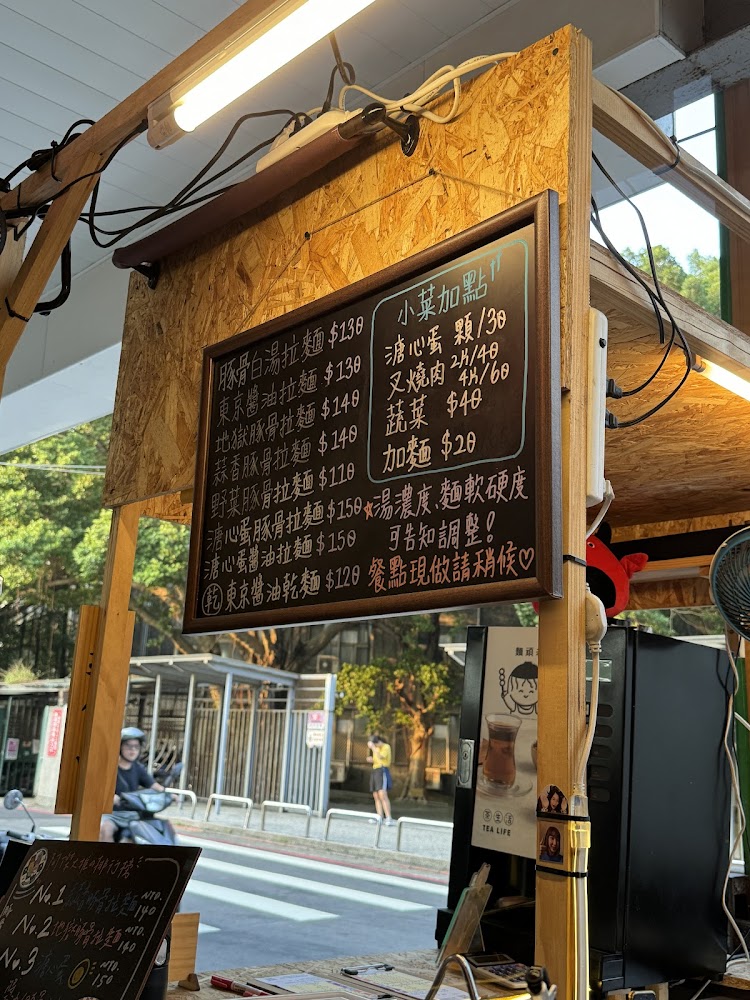 豚骨白湯拉麵 $130
東京醬油拉麵 $130
地獄豚骨拉麵 $140
蒜香豚骨拉麵 $140
野菜豚骨拉麵 $110
溏心蛋豚骨拉麵 $150
溏心蛋醬油拉麵 $150
乾 東京醬油乾麵 $120
小菜加點
溏心蛋 顆/30
叉燒肉 2片/40
4片/60
蔬菜 $40
加麵 $20
★湯濃度、麵軟硬度
可告知調整!
餐點現做請稍候♡
茶生活
TEA LIFE
No.1
NTD.
140
No.2 地獄豚骨拉麵
NTD.
140
No.3
NTD.
150